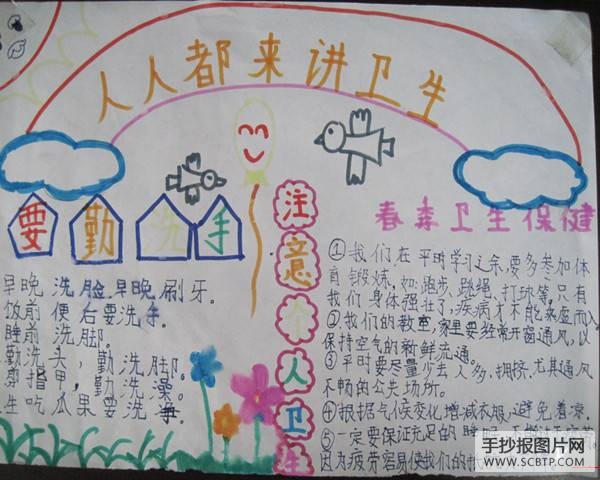 人人都来讲卫生
要勤洗手
早晚洗脸早晚刷牙。
饭前便后要洗手。
睡前洗脚。
勤洗头，勤洗脚。
剪指甲，勤洗澡。
生吃瓜果要洗净
注意个人卫生
春季卫生保健
①我们在平时学习之余，要多参加体
育锻炼，如：跑步、跳绳、打球等，只有
我们身体强壮了，疾病才不能乘虚而入
②我们的教室，家里要经常开窗通风，以
保持空气的新鲜流通。
③平时要尽量少去人多、拥挤、尤其通风
不畅的公共场所。
④根据气候变化增减衣服，避免着凉。
⑤一定要保证充足的睡眠
因为疲劳容易使我们的
手抄报图片网
WWW.SCBTP.COM